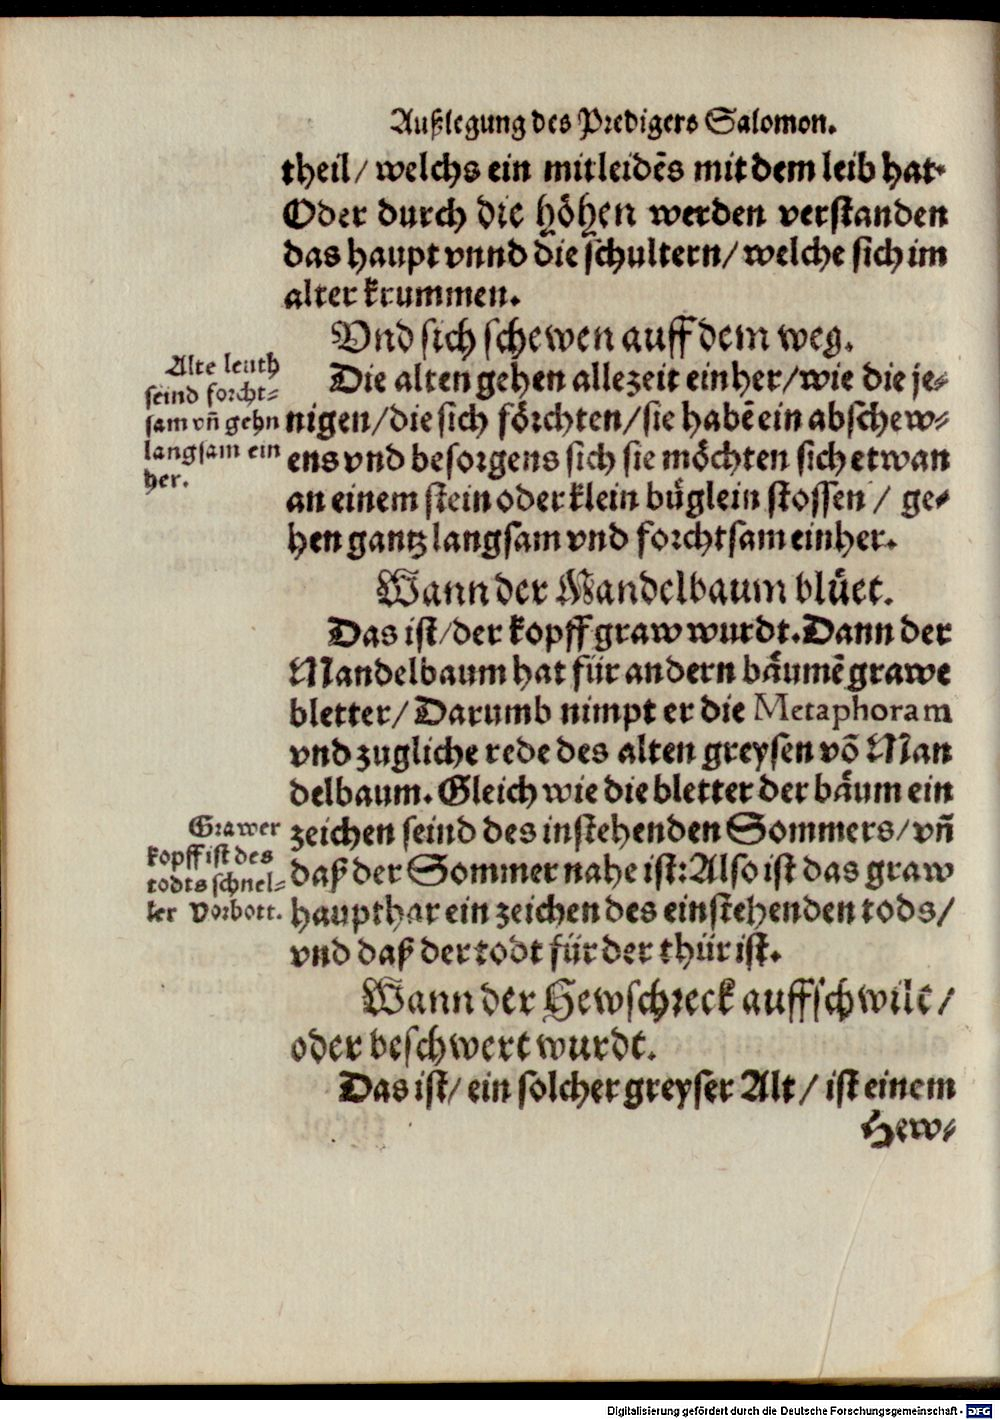 Außlegung des Predigers Salomon.
theil/ welchs ein mitleidēs mit dem leib hat.
Oder durch die höhen werden verstanden
das haupt vnnd die schultern/ welche sich im
alter krummen.
Vnd sich schewen auff dem weg.
Alte leuth
seind forcht=
sam vñ gehn
langsam ein
her.
Die alten gehen allezeit einher/ wie die je=
nigen/ die sich förchten/ sie habē ein abschew=
ens vnd besorgens sich sie möchten sich etwan
an einem stein oder klein büglein stossen/ ge=
hen gantz langsam vnd forchtsam einher.
Wann der Mandelbaum blüet.
Das ist/ der kopff graw wurdt. Dann der
Mandelbaum hat für andern bäumē grawe
bletter/ Darumb nimpt er die Metaphoram
vnd zugliche rede des alten greysen võ Man
delbaum. Gleich wie die bletter der bäum ein
zeichen seind des instehenden Sommers/ vñ
daß der Sommer nahe ist: Also ist das graw
haupthar ein zeichen des einstehenden tods/
vnd daß der todt für der thür ist.
Grawer
kopff ist des
todts schnel=
ler Vorbott.
Wann der Hewschreck auffschwilt/
oder beschwert wurdt.
Das ist/ ein solcher greyser Alt/ ist einem
Hew=
Digitalisierung gefördert durch die Deutsche Forschungsgemeinschaft - DFG